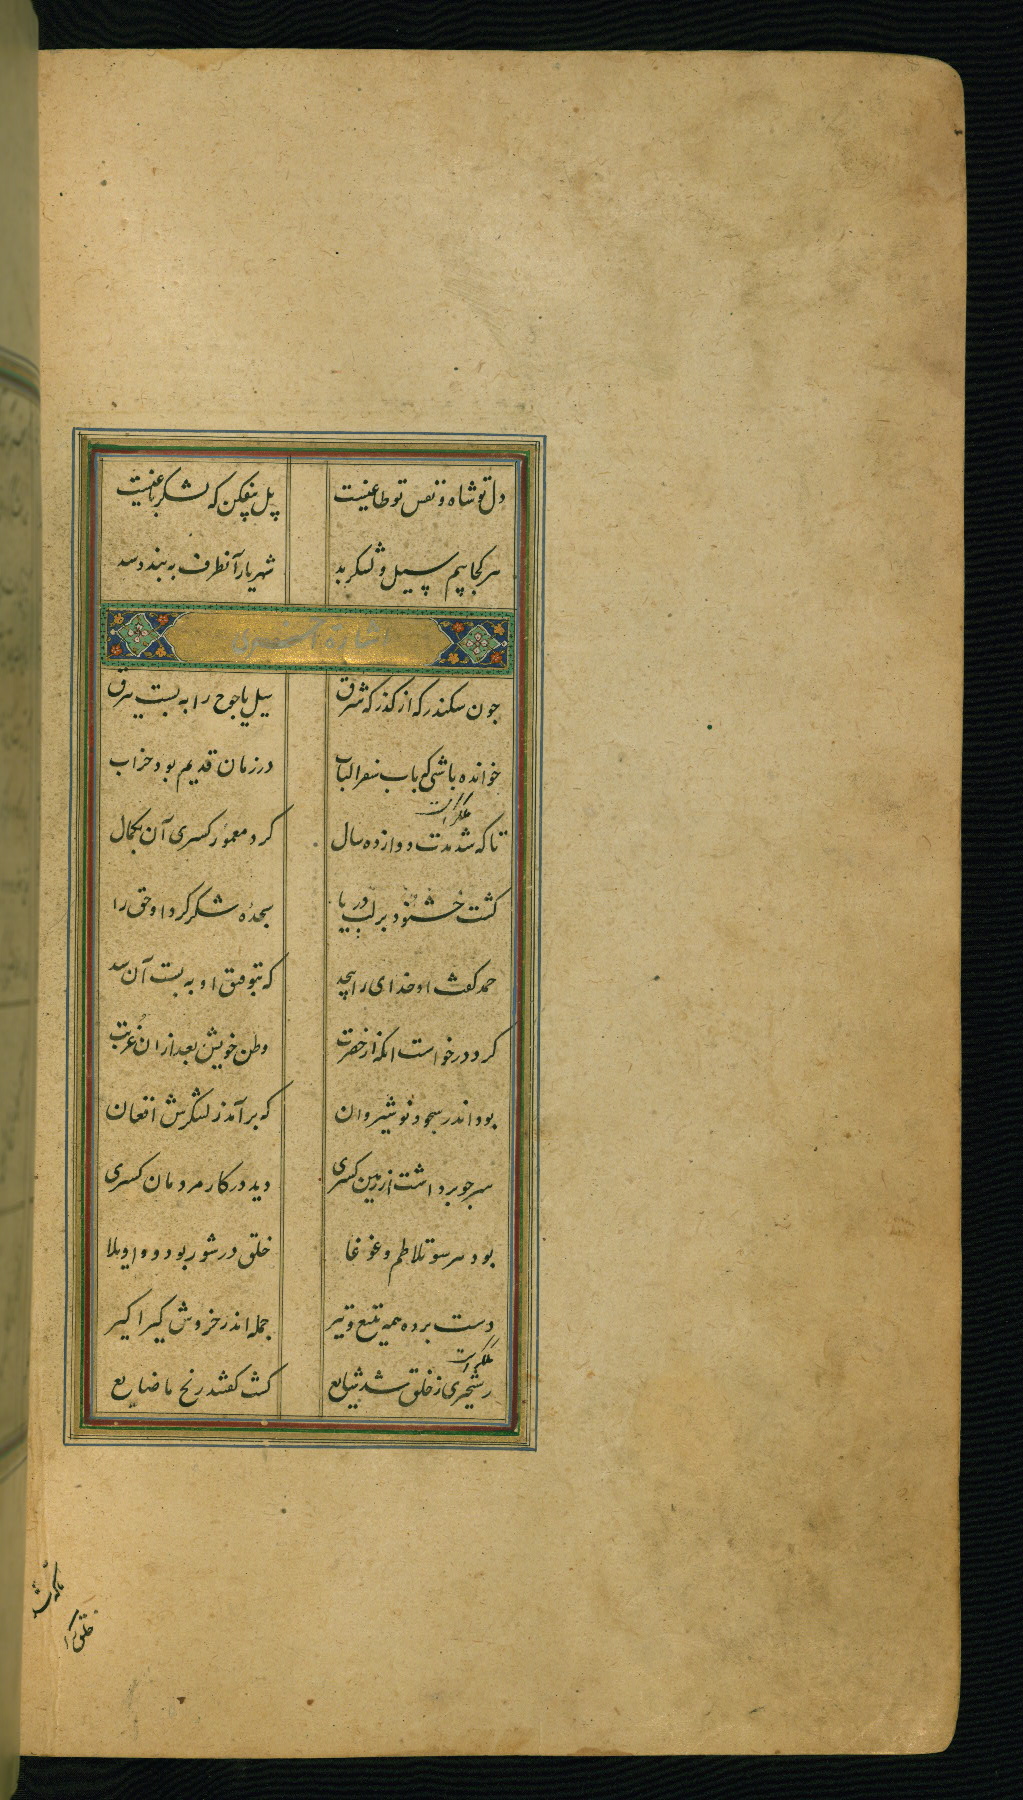 دل تو شاه و نفس تو طاغیست پل بیفکن که لشکر یاغیست
هر کجا بیم سیل و لشکر بد شهریار آنطرف به بندد سد
اشارة
چون سکندر که از گذرکه شرق سیل یاجوج را به بست برق
خوانده باشی که باب سفر الباب در زمان قدیم بود خراب
تا که شد مدت دوازده سال کرد معمور کسری آن بکمال
کشت خشنود بر لب دریا سجده شکر کرد او حق را
حمد کفت او خدای را بیحد که بتوفیق او به بست آن سد
کرد درخواست انکه از حضرت وطن خویش بعد ازان غربت
بود اندر سجود نوشیروان که برآمد ز لشکرش افغان
سر چو برداشت از زمین کسری دید در کار مردمان کسری
بود هر سو تلاطم و غوغا خلق در شور بود و واویلا
دست برده همه بتیغ و تیر جمله اندر خروش گیرا گیر
ز خلق شد شایع کفتند رنج ما ضایع